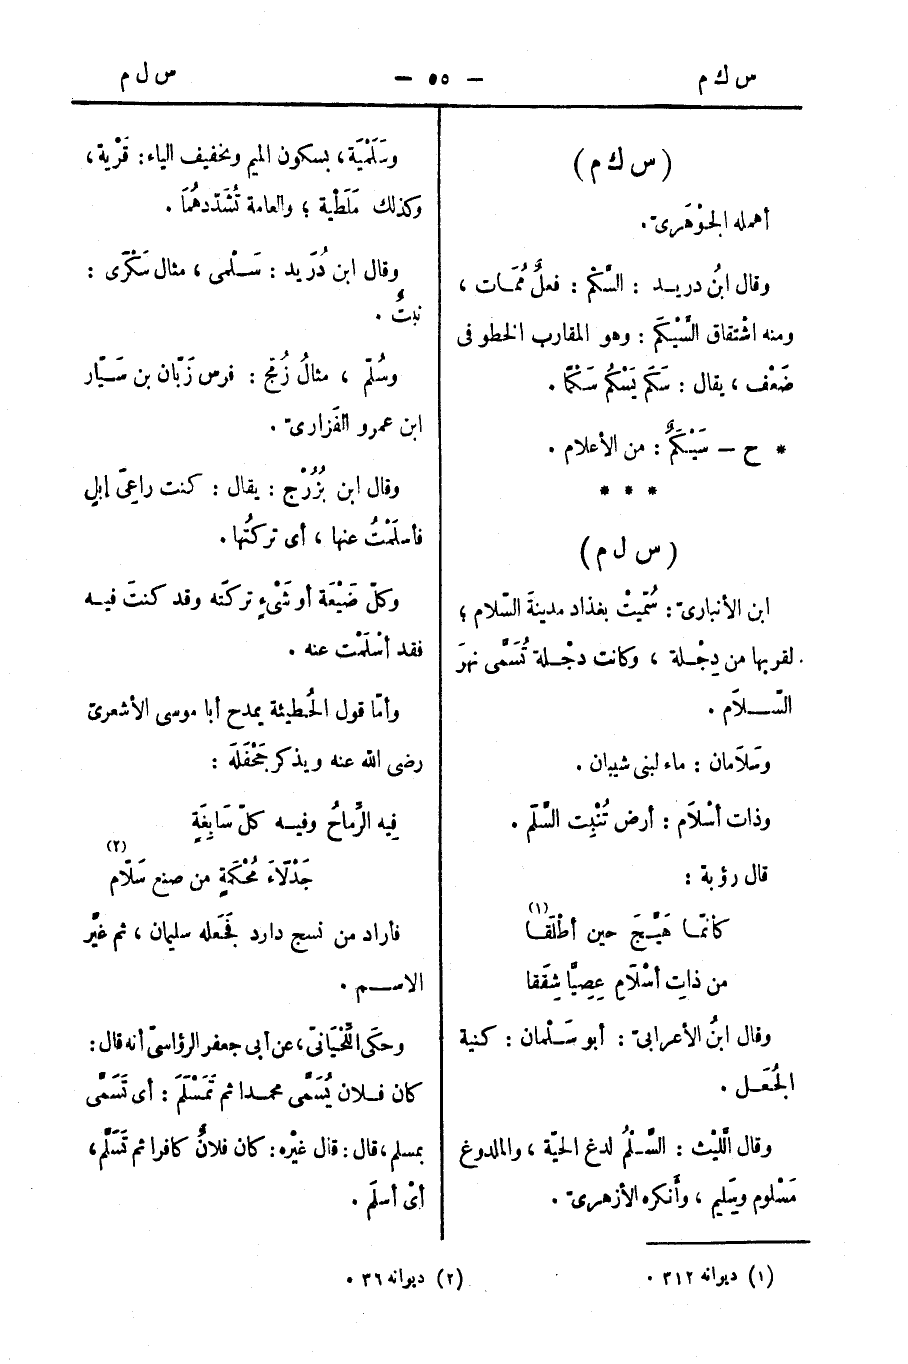 س ك م
— ٥٥ —
س ل م
(س ك م)
أهمله الجَوْهَرىّ.
وقال ابنُ دريـد : السَّكْم : فعلٌ مُمَات ،
ومنه اشْتقاق السَّيْكَم : وهو المقارب الخطو فى
ضَعْف ، يقال : سَكَم يَسْكُم سَكْمًا .
* ح — سَيْكَمٌ : من الأعلام .
* * *
(س ل م)
ابن الأنبارىّ : سُمّيتْ بغداد مدينةَ السّلام ؛
لقربها من دِجْـلة ، وكانت دجْـلة تُسَمَّى نهرَ
السّــلاَم .
وسَلاَمان : ماء لبنى شيبان .
وذات أسْلاَم : أرض تُنْبِت السَّلَم .
قال رؤبة :
كأنمّـا هَيَّـجَ حين أطْلَقَـا (١)
من ذاتِ أسْلاَمِ عِصِيًّا شِقَقا
وقال ابنُ الأعرابىّ : أبو سَـلْمان : كنية
الجُعَـل .
وقال اللَّيْث : السَّـلْمُ لدغ الحيّة ، والملدوغ
مَسْلوم وسَليم ، وأَنكره الأزهرىّ .
وسَلَمْيَة ، بسكون الميم وتخفيف الياء : قَرْية ،
وكذلك مَلَطْية ؛ والعامة تُشَدّدهُمَا .
وقال ابن دُرَيد : سَـلْمى ، مثال سَكْرَى :
نبتٌ .
وسُلَّم ، مثالُ زُمَّج : فرس زَبّان بن سَـيّار
ابن عمرو الفَزارىّ .
وقال ابن بُزُرْج : يقال : كنت راعِىَ إبلٍ
فأسلَمْتُ عنها ، أى تركتُها .
وكلّ ضَيْعَة أو شَىْءٍ تركتَه وقد كنتَ فيـه
فقد أسْلَمْت عنه .
وأمّا قول الحُطيئة يمدح أبا موسى الأشعرىّ
رضى الله عنه ويذكر جَحْفَلَه :
فِيه الرِّماحُ وفيـه كلّ سَابِغَةٍ
جَدْلاَءَ مُحْكَمَةٍ من صنع سَلّام (٢)
فأراد من نسج دارد فجَعله سليمان ، ثم غيَّر
الاســم .
وحكَى اللَّحْيَانىّ ، عن أبى جعفر الرؤاسىّ أنه قال :
كان فـلان يُسَمَّى محمـدا ثم تَمَسْلَمَ : أى تَسَمَّى
بمسلم ، قال : قال غيْره : كان فلانٌ كافرا ثم تَسَلَّم ،
أىْ أسلَم .
(١) ديوانه ٣١٢ .
(٢) ديوانه ٣٦ .